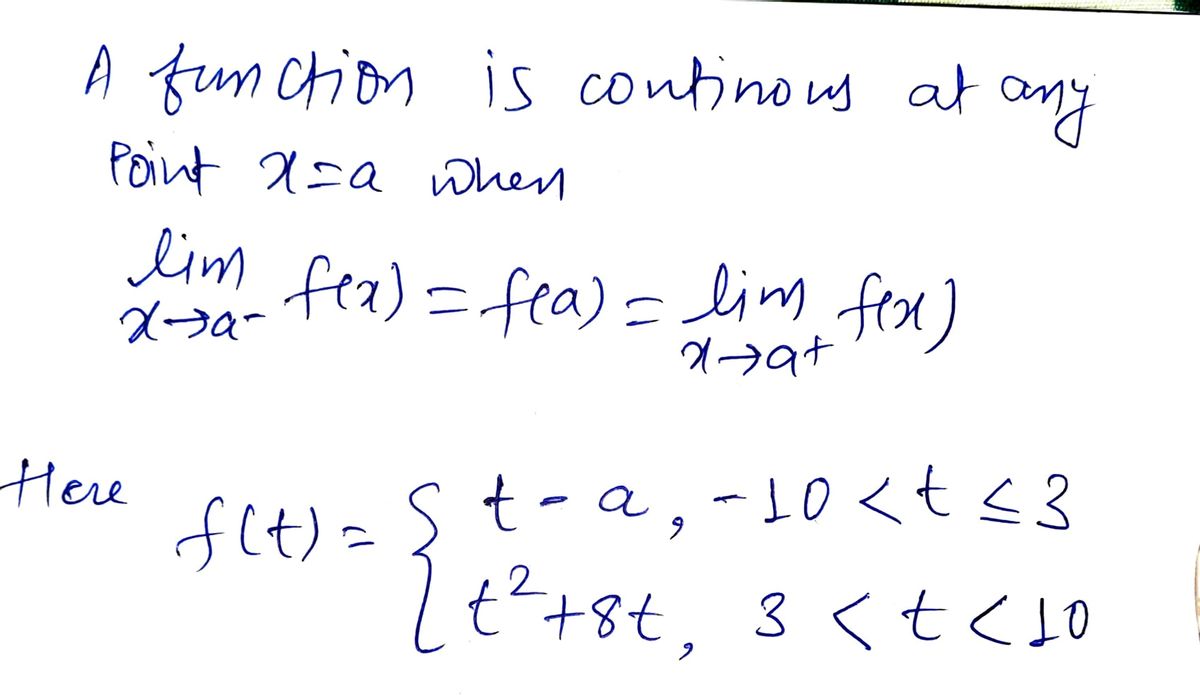 A function is continous at any
Point x=a when
lim x→a- f(x) = f(a) = lim x→a+ f(x)
Here f(t) = { t - a, -10 < t ≤ 3
t²+8t, 3 < t < 10